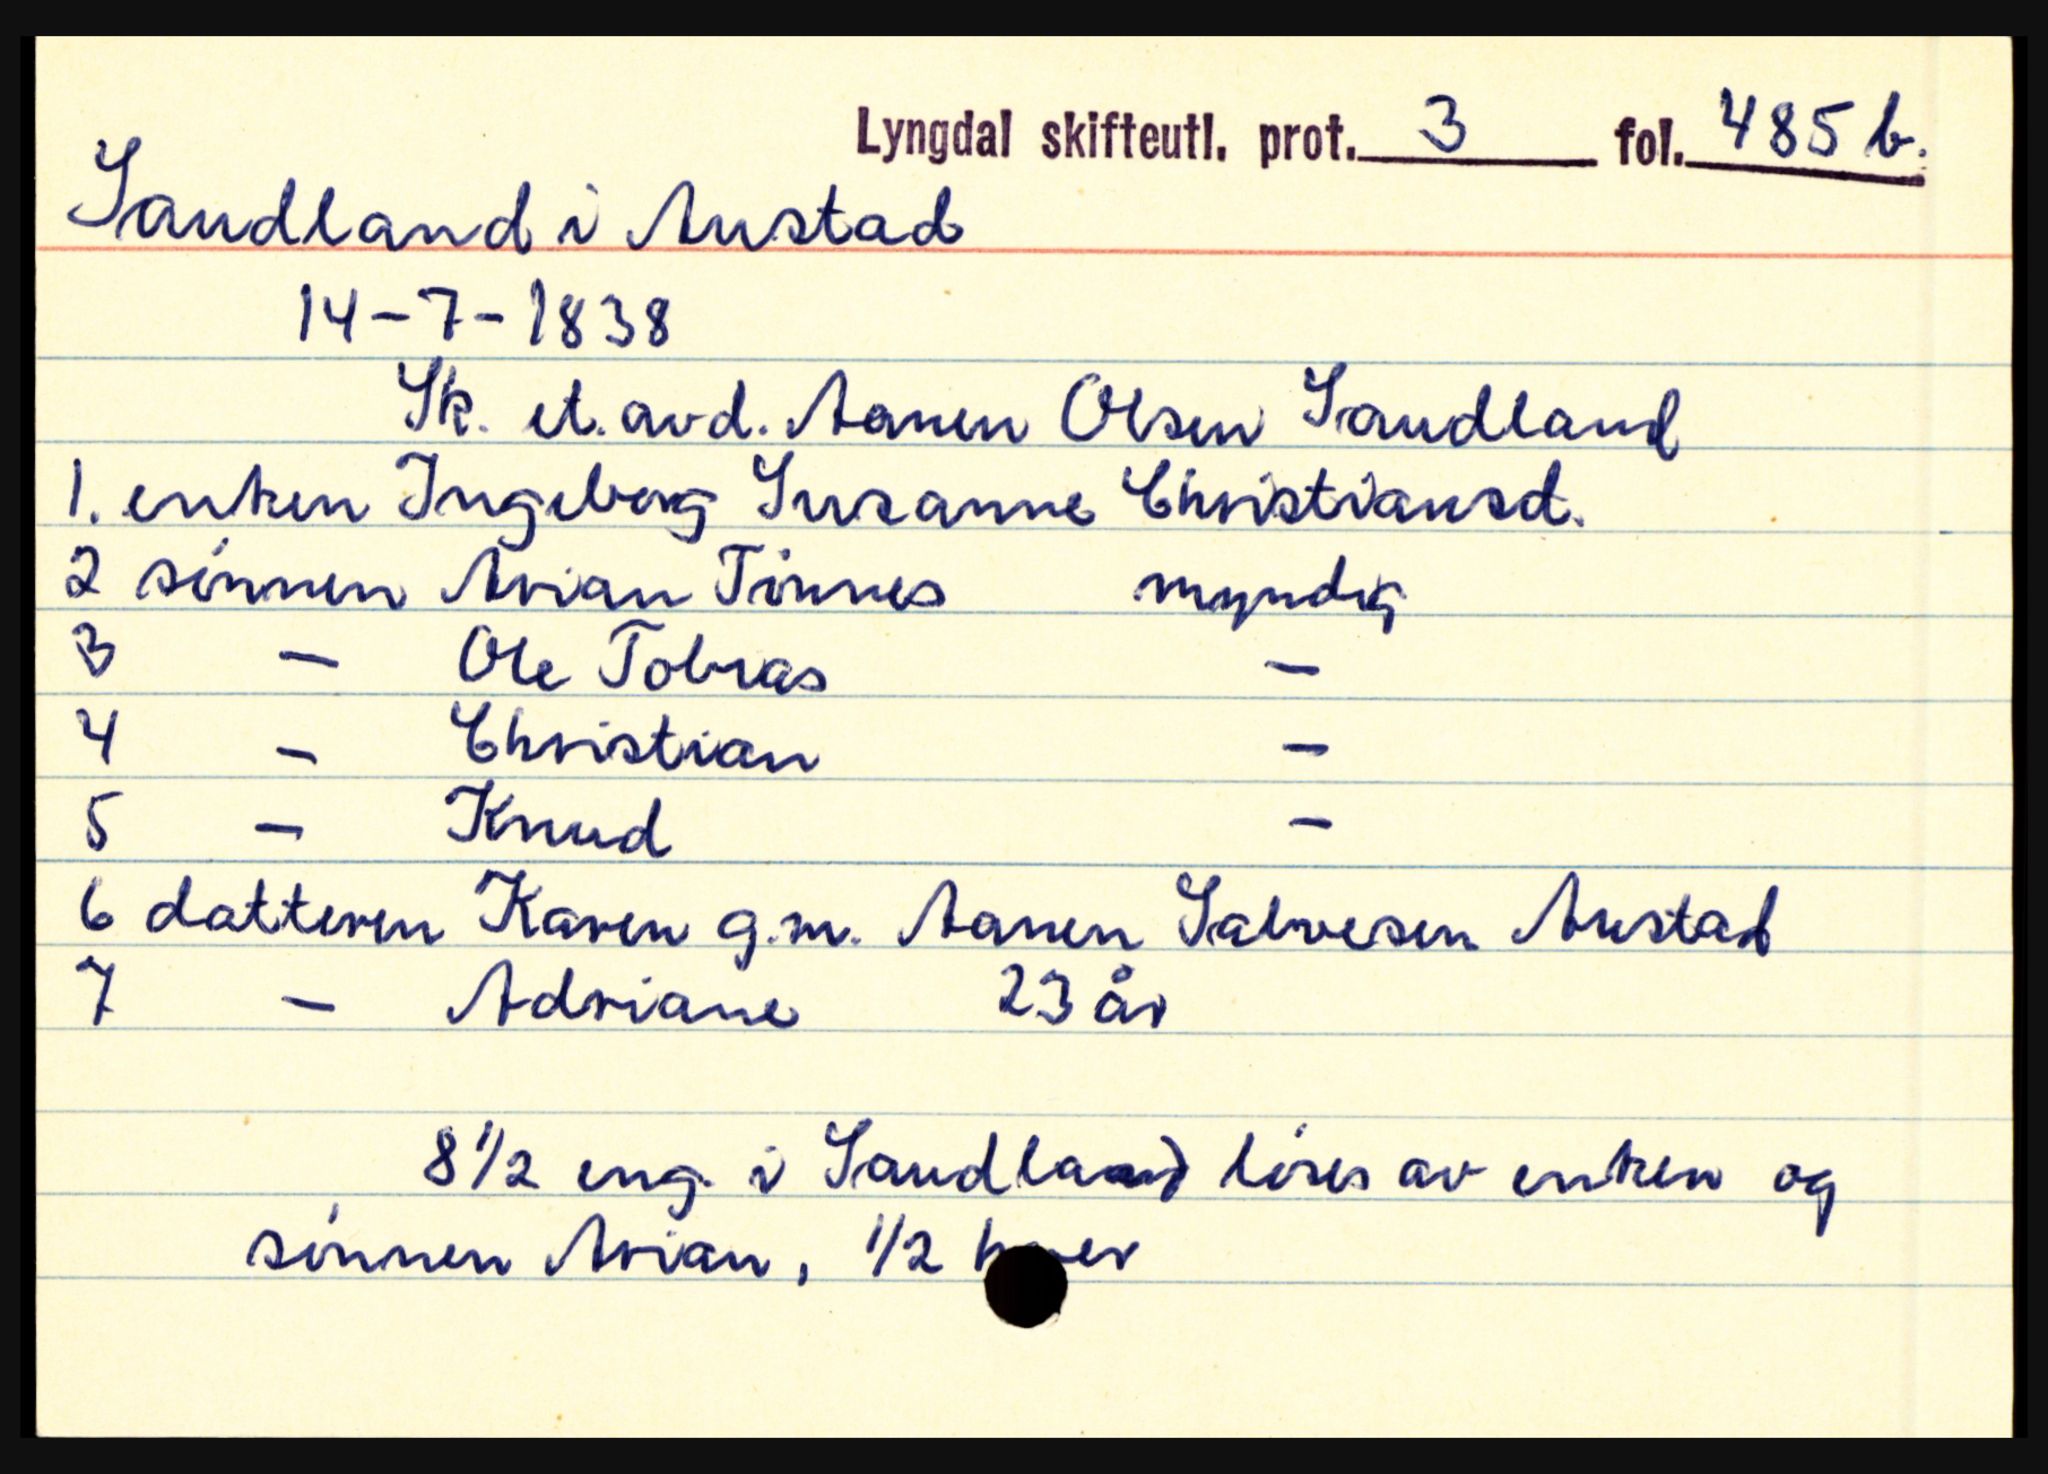 Lyngdal skifteutl. prot. 3 fol. 485 b.
Sandland i Austad
14-7-1838
Sk. et. avd. Aanen Olsen Sandland
1. enken Ingeborg Susanne Christiansd.
2 sónnen Arian Tónnes myndig
3 — Ole Tobias —
4 — Christian —
5 — Knud —
6 datteren Karen g.m. Aanen Salvesen Austad
7 — Adriane 23 år
8 1/2 eng. i Sandland lóses av enken og
sónnen Arian, 1/2 hver